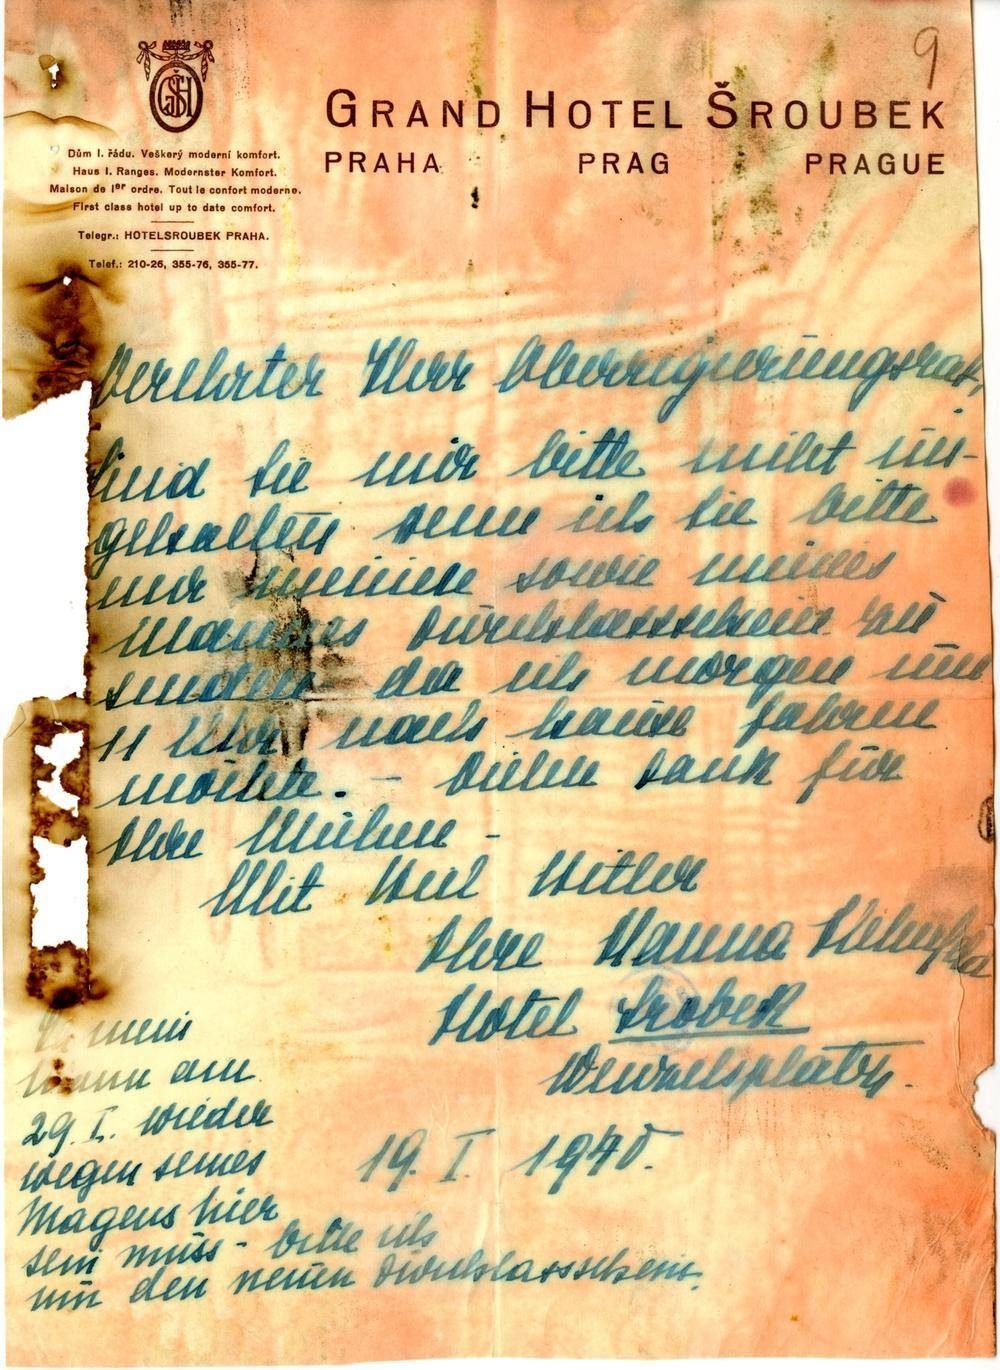 9
GŠH
GRAND HOTEL ŠROUBEK
PRAHA PRAG PRAGUE
Dům I. řádu. Veškerý moderní komfort.
Haus I. Ranges. Modernster Komfort.
Maison de Ier ordre. Tout le confort moderne.
First class hotel up to date comfort.
Telegr.: HOTELSROUBEK PRAHA.
Telef.: 210-26, 355-76, 355-77.
Verehrter Herr Oberregierungsrat,
Sind Sie mir bitte nicht un-
gehalten wenn ich Sie bitte
mir meinen sowie meines
Mannes Durchlassschein zu
senden da ich morgen um
11 Uhr nach hause fahren
möchte. – Vielen Dank für
Ihre Mühen –
Mit Heil Hitler
Ihre Hanna
Hotel Srobek
Wenzelsplatz.
19. I. 1940.
mein
Mann am
29. I. wieder
wegen seines
Magens hier
sein muss – bitte ich
um den neuen Durchlassschein.